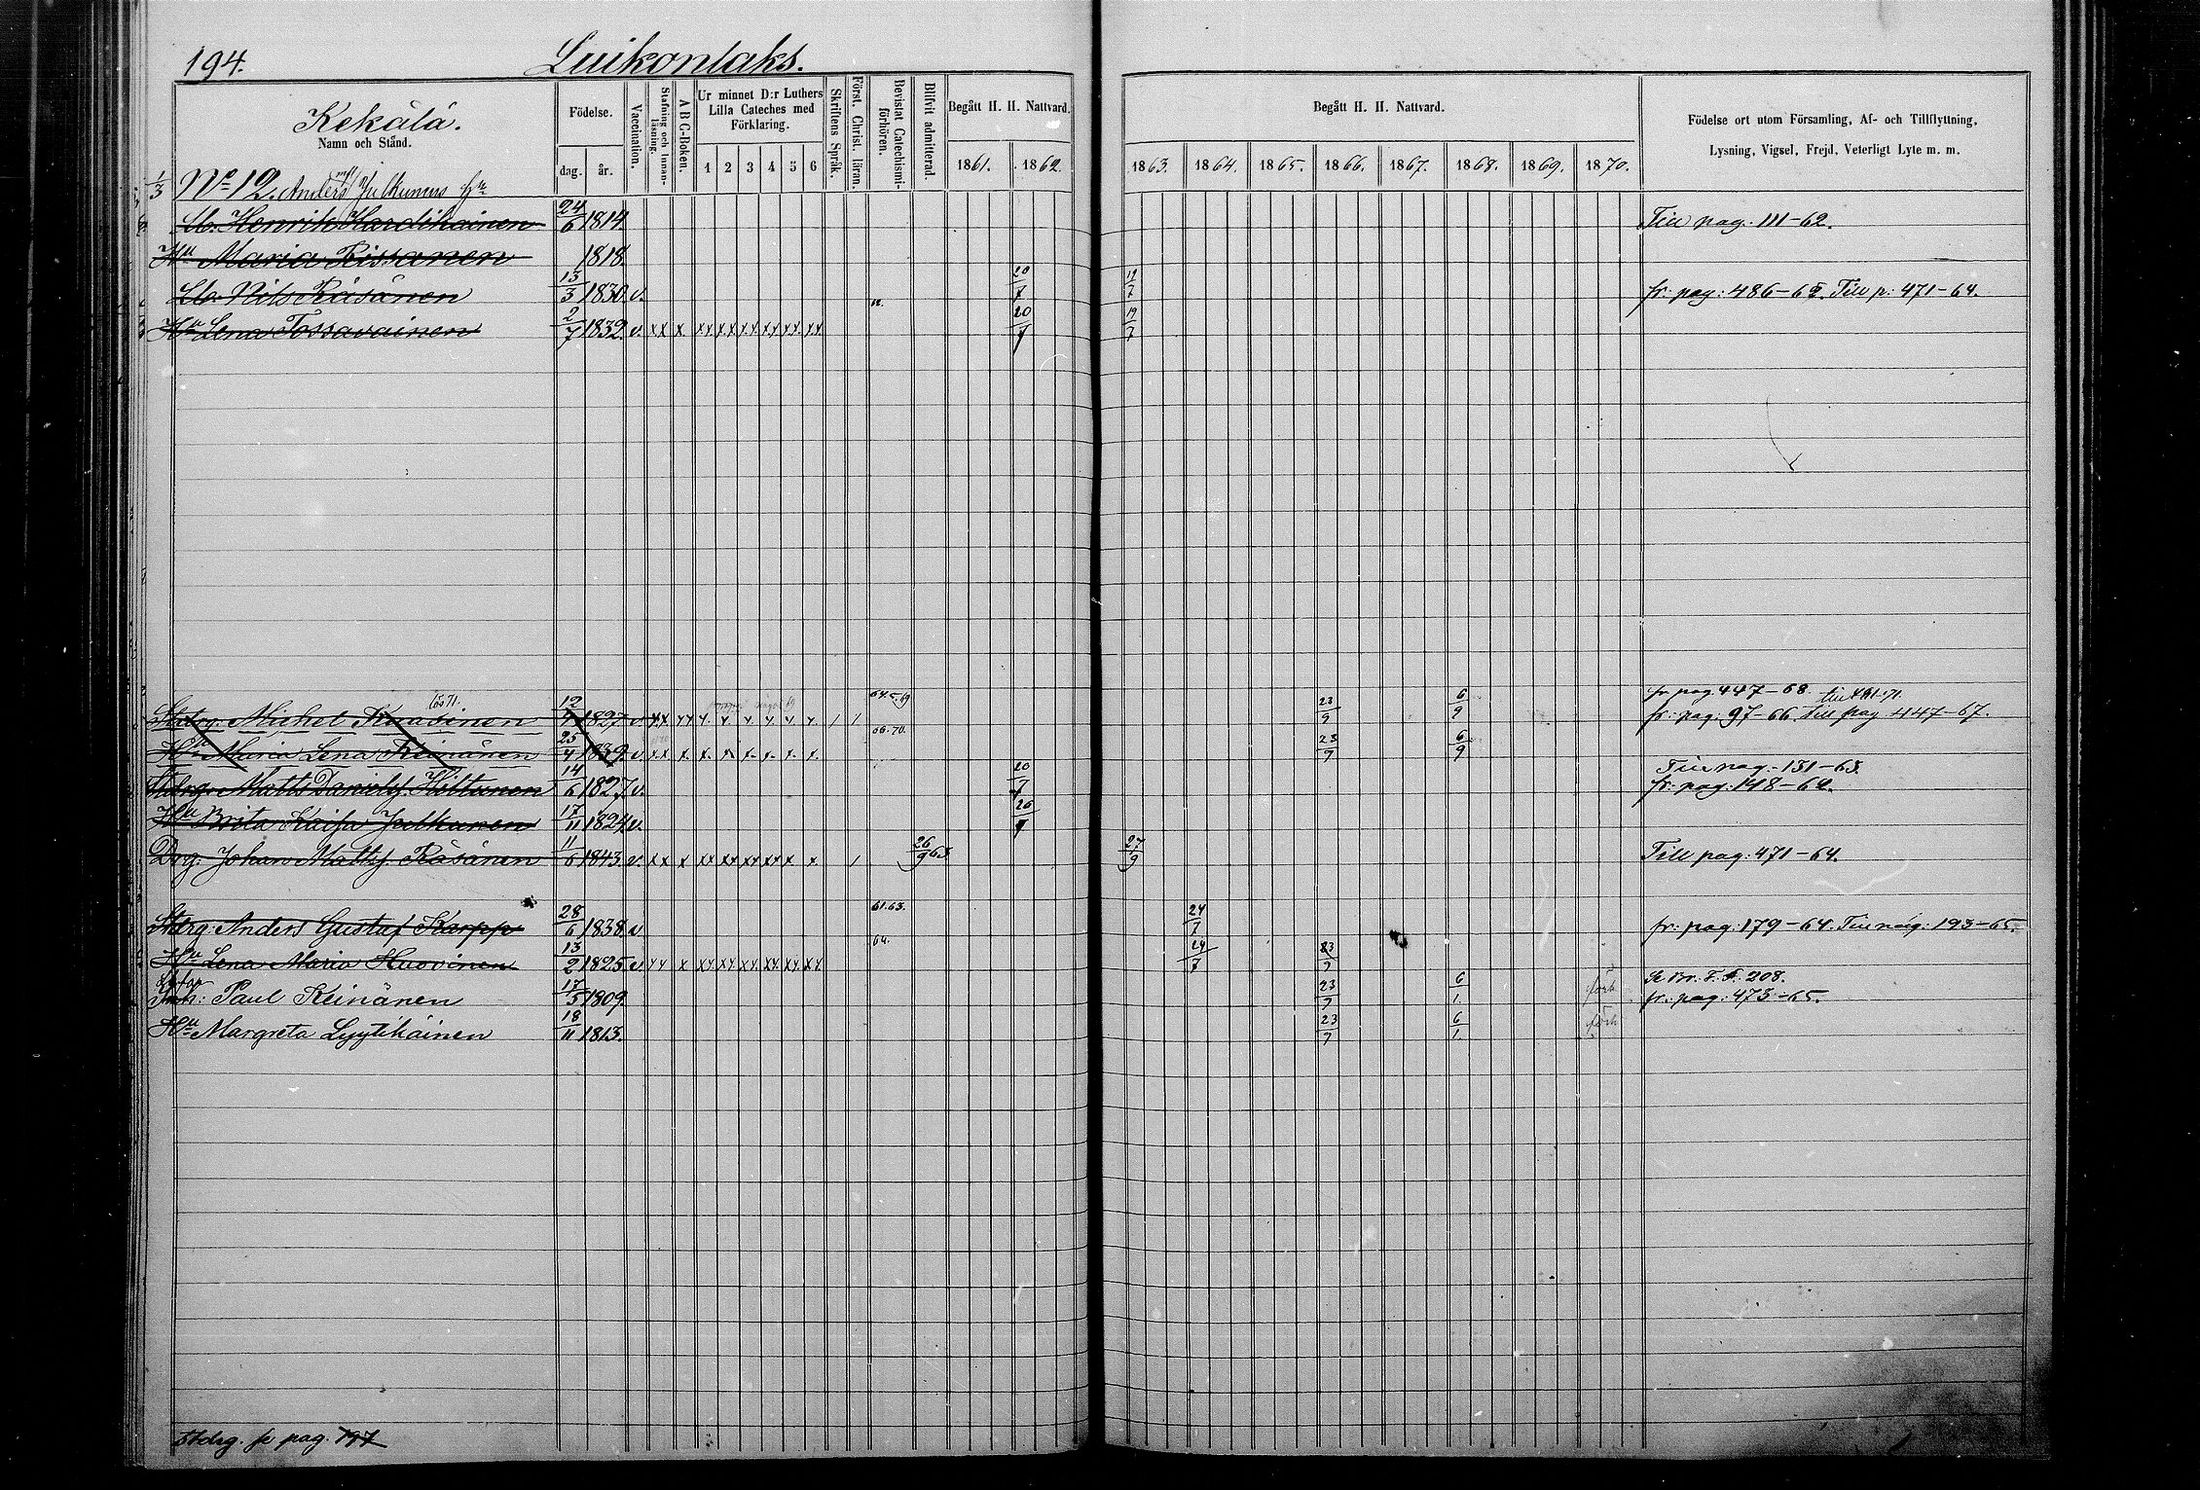 194. Luikonlaks.
Kekälä.
Namn och Stånd.
Födelse.
dag. år.
Vaccination.
Stafning och Innan-läsning.
A B C-Boken.
Ur minnet D:r Luthers Lilla Cateches med Förklaring.
1 2 3 4 5 6
Skriftens Språk.
Först. Christ. läran.
Bevistat Catechismi-förhören.
Blifvit admitterad.
Begått H. H. Nattvard.
1861. 1862.
Begått H. H. Nattvard.
1863. 1864. 1865. 1866. 1867. 1868. 1869. 1870.
Födelse ort utom Församling, Af- och Tillflyttning,
Lysning, Vigsel, Frejd, Veterligt Lyte m. m.
1/3 No 12. Anders
Lb. Henrik 24/6 1814. Till pag. 111-62.
Hu Maria Rissanen 1818.
Lb. Nils Räsänen 13/3 1830. v. 20/7 19/7 fr: pag: 486-62. Till p: 471-64.
Hu Lena Tossavainen 2/7 1832. v. xx x xx xx xx xx xx xx 62. 20/7 19/7
fr pag. 447-68. till 481-71.
Michel 12/ 1827 v. xx xx x. x x x x x. / / 23/9 6/9 fr: pag: 97-66. till pag 447-67.
Hu Maria Lena Keinänen 25/4 1839. v. xx x. x. x x. x. x. x. 66.70. 23/9 6/9
Till pag. 131-63.
Matts Daniels. Hiltunen 14/6 1827. v. 20/7 fr: pag: 148-62.
Hu Brita Kaisa 17/11 1824. v.
Drg: Johan Matts. Räsänen 11/6 1843. v. xx x xx xx xx xx x x. / 26/9 63 27/9 Till pag: 471-64.
Anders Gustaf Karppi 28/6 1838 v 61.63. 24/7 fr: pag: 179-64. Till pag: 193-65.
Hu Lena Maria Huovinen 13/2 1825 v xx x xx xx xx xx xx xx 64. 24/7 23/9
Se Br. F. 208.
Paul Keinänen 17/5 1809. 23/9 6/1. fr: pag: 473-65.
Hu Margreta Lyytikäinen 18/11 1813. 23/9 6/1.
Stdrg. se pag. 197